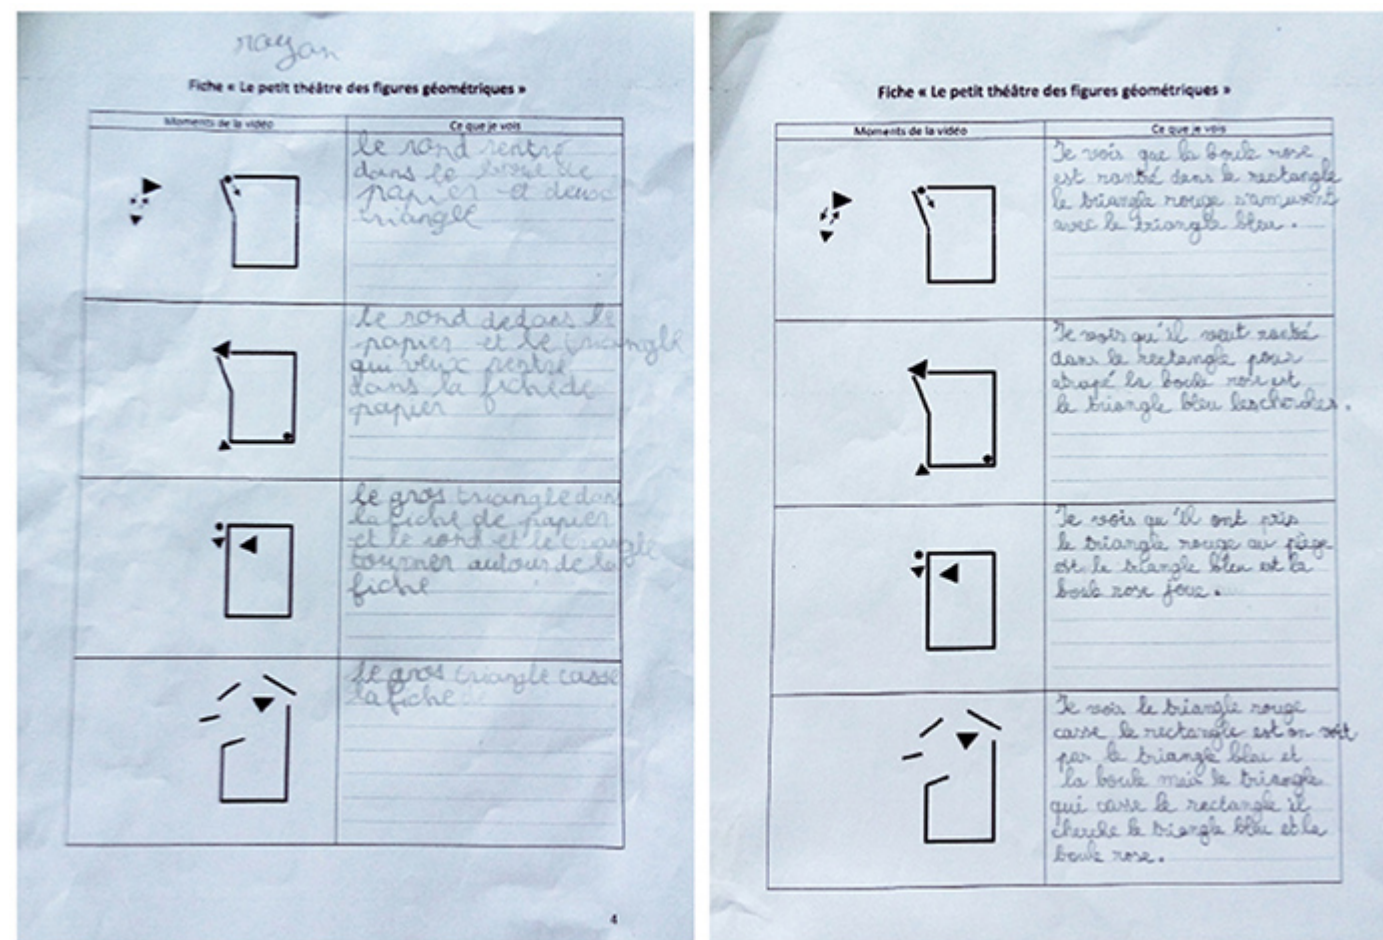 rayan
Fiche « Le petit théâtre des figures géométriques »
Moments de la vidéo
Ce que je vois
le rond rentre
dans le de
papier et deux
triangle
le rond dedans le
papier et le triangle
qui veux rentre
dans la fiche de
papier
le gros triangle dans
la fiche de papier
et le rond et le triangle
tourner autour de la
fiche
le gros triangle casse
la fiche de
4
Fiche « Le petit théâtre des figures géométriques »
Moments de la vidéo
Ce que je vois
Je vois que la boule rose
est rantré dans le rectangle
le triangle rouge s'amusent
avec le triangle bleu.
Je vois qu'il veut rentré
dans le rectangle pour
atrapé la boule rose est
le triangle bleu
Je vois qu'il ont pris
le triangle rouge au piège
est le triangle bleu est la
boule rose joue.
Je vois le triangle rouge
casse le rectangle est on voit
pas le triangle bleu et
la boule mais le triangle
qui casse le rectangle il
cherche le triangle bleu et la
boule rose.